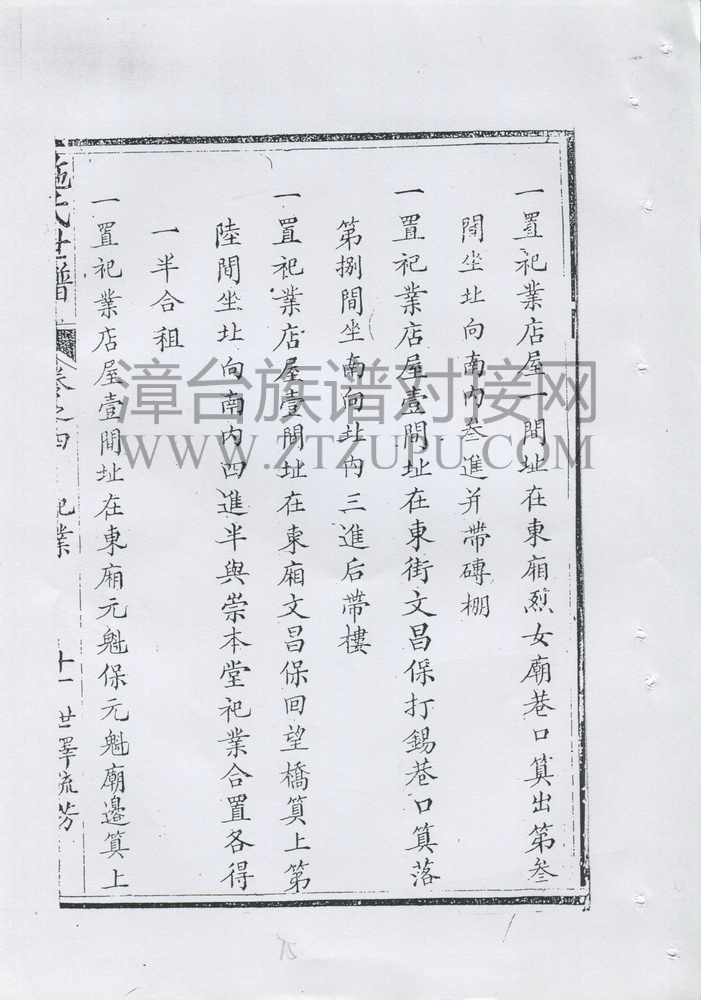 一置祀業店屋一間址在東廂烈女廟巷口箕出第叁
間坐址向南內叁進并帶磚棚
一置祀業店屋壹間址在東街文昌保打錫巷口箕落
第捌間坐南向北內三進后帶樓
一置祀業店屋壹間址在東廂文昌保回望橋箕上第
陸間坐北向南內四進半與崇本堂祀業合置各得
一半合租
一置祀業店屋壹間址在東廂元魁保元魁廟邊箕上
施氏世譜 卷之四 祀業 十一 世澤流芳
漳台族谱对接网
WWW.ZTZUPU.COM
75